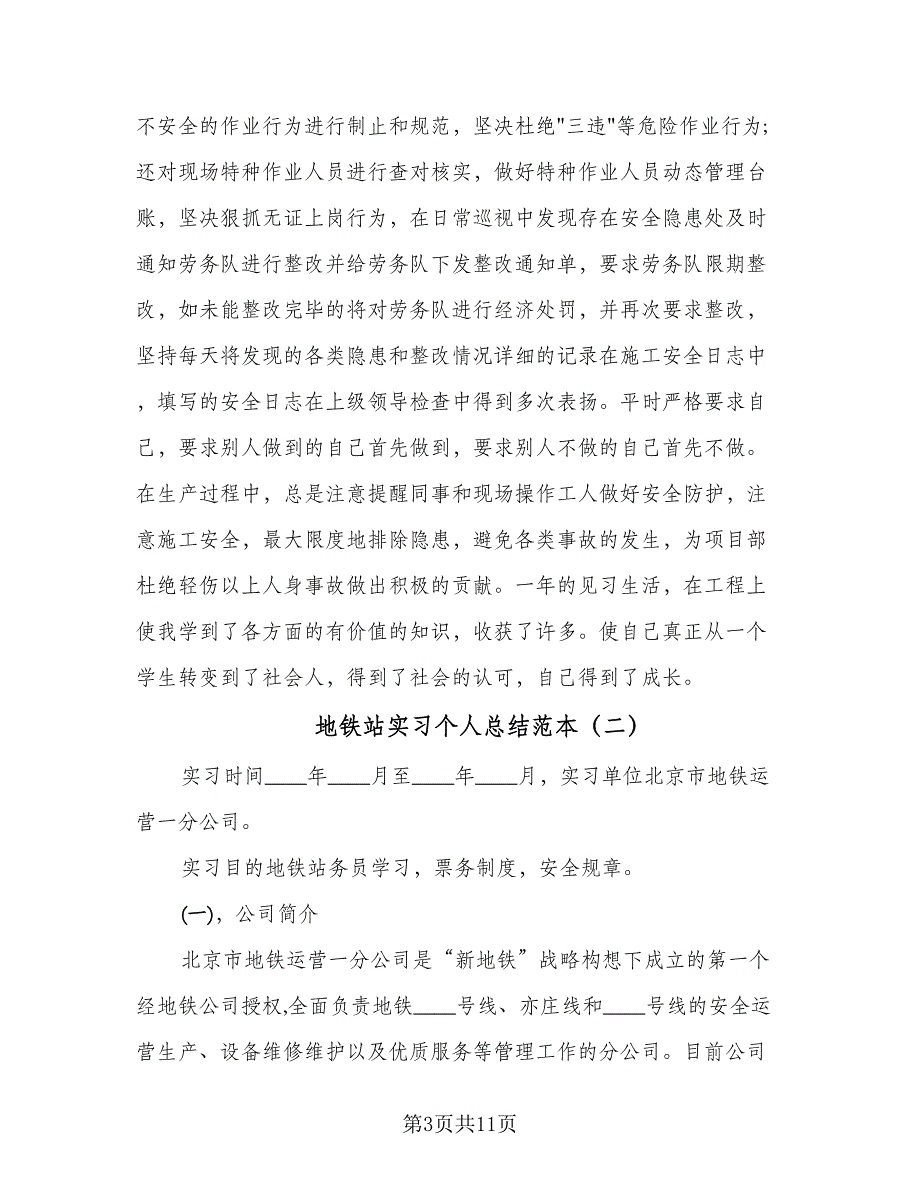 不安全的作业行为进行制止和规范，坚决杜绝"三违"等危险作业行为;
还对现场特种作业人员进行查对核实，做好特种作业人员动态管理台
账，坚决狠抓无证上岗行为，在日常巡视中发现存在安全隐患处及时
通知劳务队进行整改并给劳务队下发整改通知单，要求劳务队限期整
改，如未能整改完毕的将对劳务队进行经济处罚，并再次要求整改，
坚持每天将发现的各类隐患和整改情况详细的记录在施工安全日志中
，填写的安全日志在上级领导检查中得到多次表扬。平时严格要求自
己，要求别人做到的自己首先做到，要求别人不做的自己首先不做。
在生产过程中，总是注意提醒同事和现场操作工人做好安全防护，注
意施工安全，最大限度地排除隐患，避免各类事故的发生，为项目部
杜绝轻伤以上人身事故做出积极的贡献。一年的见习生活，在工程上
使我学到了各方面的有价值的知识，收获了许多。使自己真正从一个
学生转变到了社会人，得到了社会的认可，自己得到了成长。
地铁站实习个人总结范本（二）
实习时间____年____月至____年____月，实习单位北京市地铁运
营一分公司。
实习目的地铁站务员学习，票务制度，安全规章。
(一)，公司简介
北京市地铁运营一分公司是“新地铁”战略构想下成立的第一个
经地铁公司授权,全面负责地铁____号线、亦庄线和____号线的安全运
营生产、设备维修维护以及优质服务等管理工作的分公司。目前公司
第3页共11页